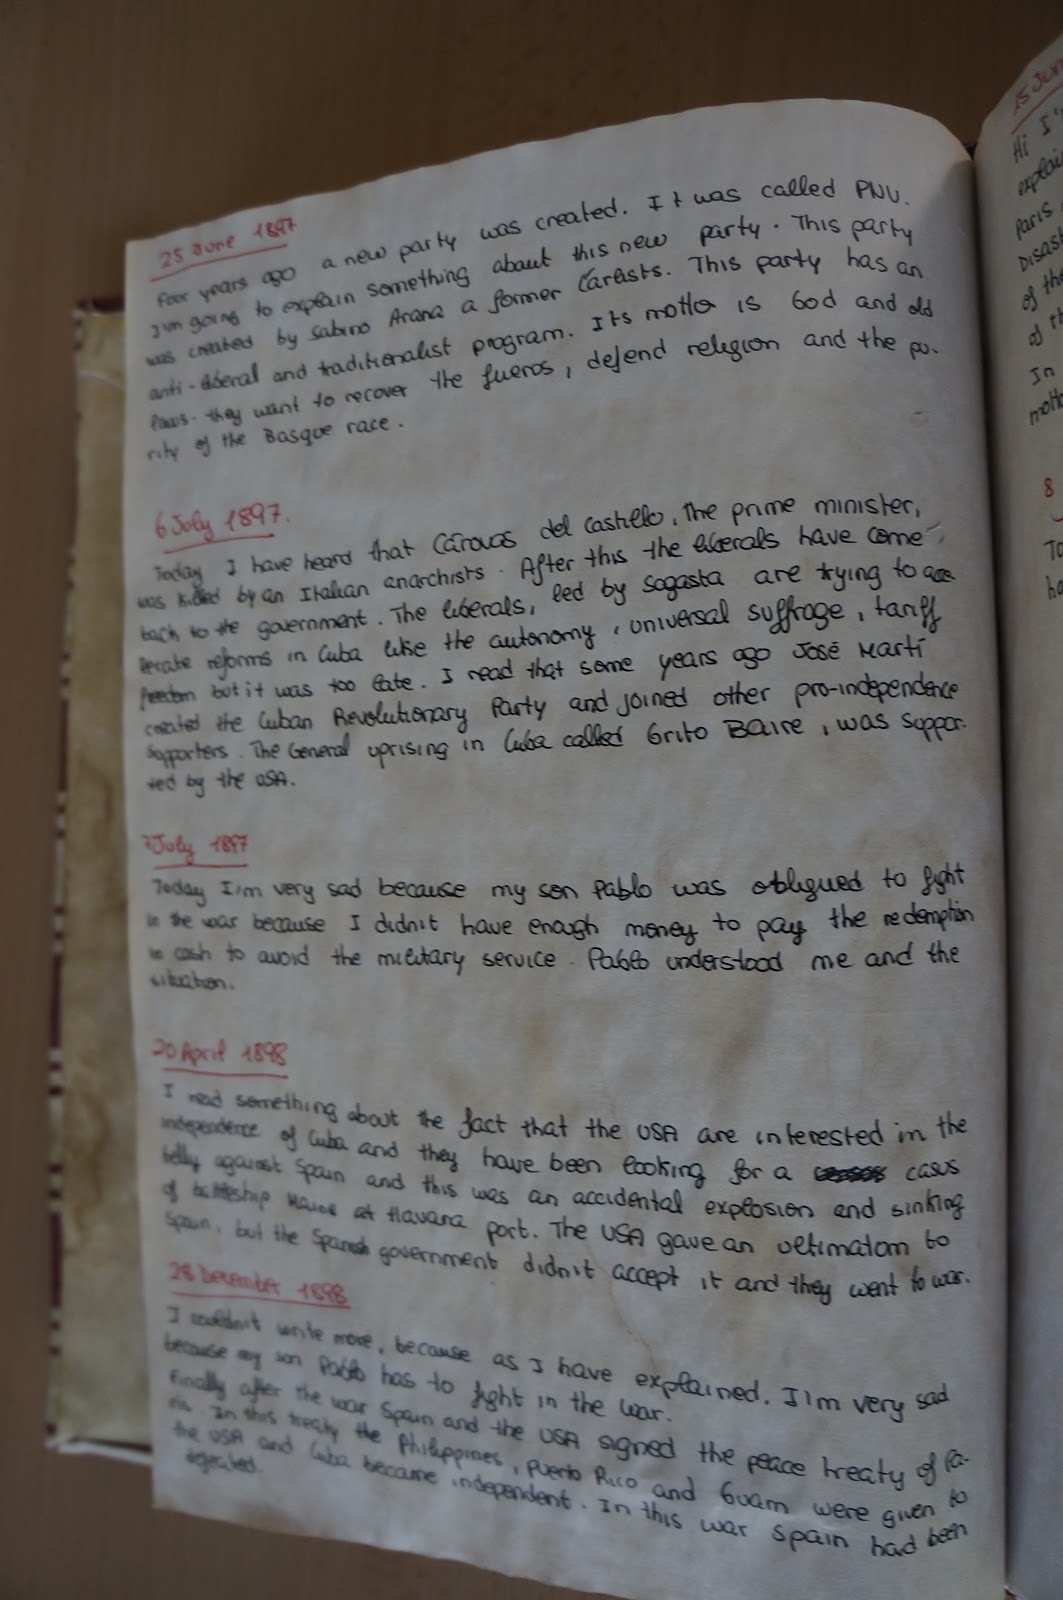 25 June 1897
Four years ago a new party was created. It was called PNV.
I'm going to explain something about this new party. This party
was created by Sabino Arana a former Carlists. This party has an
anti-liberal and traditionalist program. Its motto is God and old
laws. they want to recover the fueros, defend religion and the pu-
rity of the Basque race.
6 July 1897.
Today I have heard that Cánovas del Castillo, the prime minister,
was killed by an Italian anarchists. After this the liberals have come
back to the government. The liberals, led by Sagasta are trying to
lerate reforms in Cuba like the autonomy, universal suffrage, tariff
freedom but it was too late. I read that some years ago José Martí
created the Cuban Revolutionary Party and joined other pro-independence
supporters. The General uprising in Cuba called Grito Baire, was suppor-
ted by the USA.
7 July 1897
Today I'm very sad because my son Pablo was obligued to fight
in the war because I didn't have enough money to pay the redemption
in cash to avoid the military service. Pablo understood me and the
situation.
20 April 1898
I read something about the fact that the USA are interested in the
independence of Cuba and they have been looking for a casus
belly against Spain and this was an accidental explosion and sinking
of battleship Maine at Havana port. The USA gave an ultimatum to
Spain, but the Spanish government didn't accept it and they went to war.
28 December 1898
I couldn't write more, because as I have explained, I'm very sad
because my son Pablo has to fight in the war.
Finally after the war Spain and the USA signed the peace treaty of Pa-
ris. In this treaty the Philippines, Puerto Rico and Guam were given to
the USA and Cuba became independent. In this war Spain had been
defeated.
15 Jun
Hi I'
explai
Paris
Disast
of the
of th
In
motto
8
To
ha